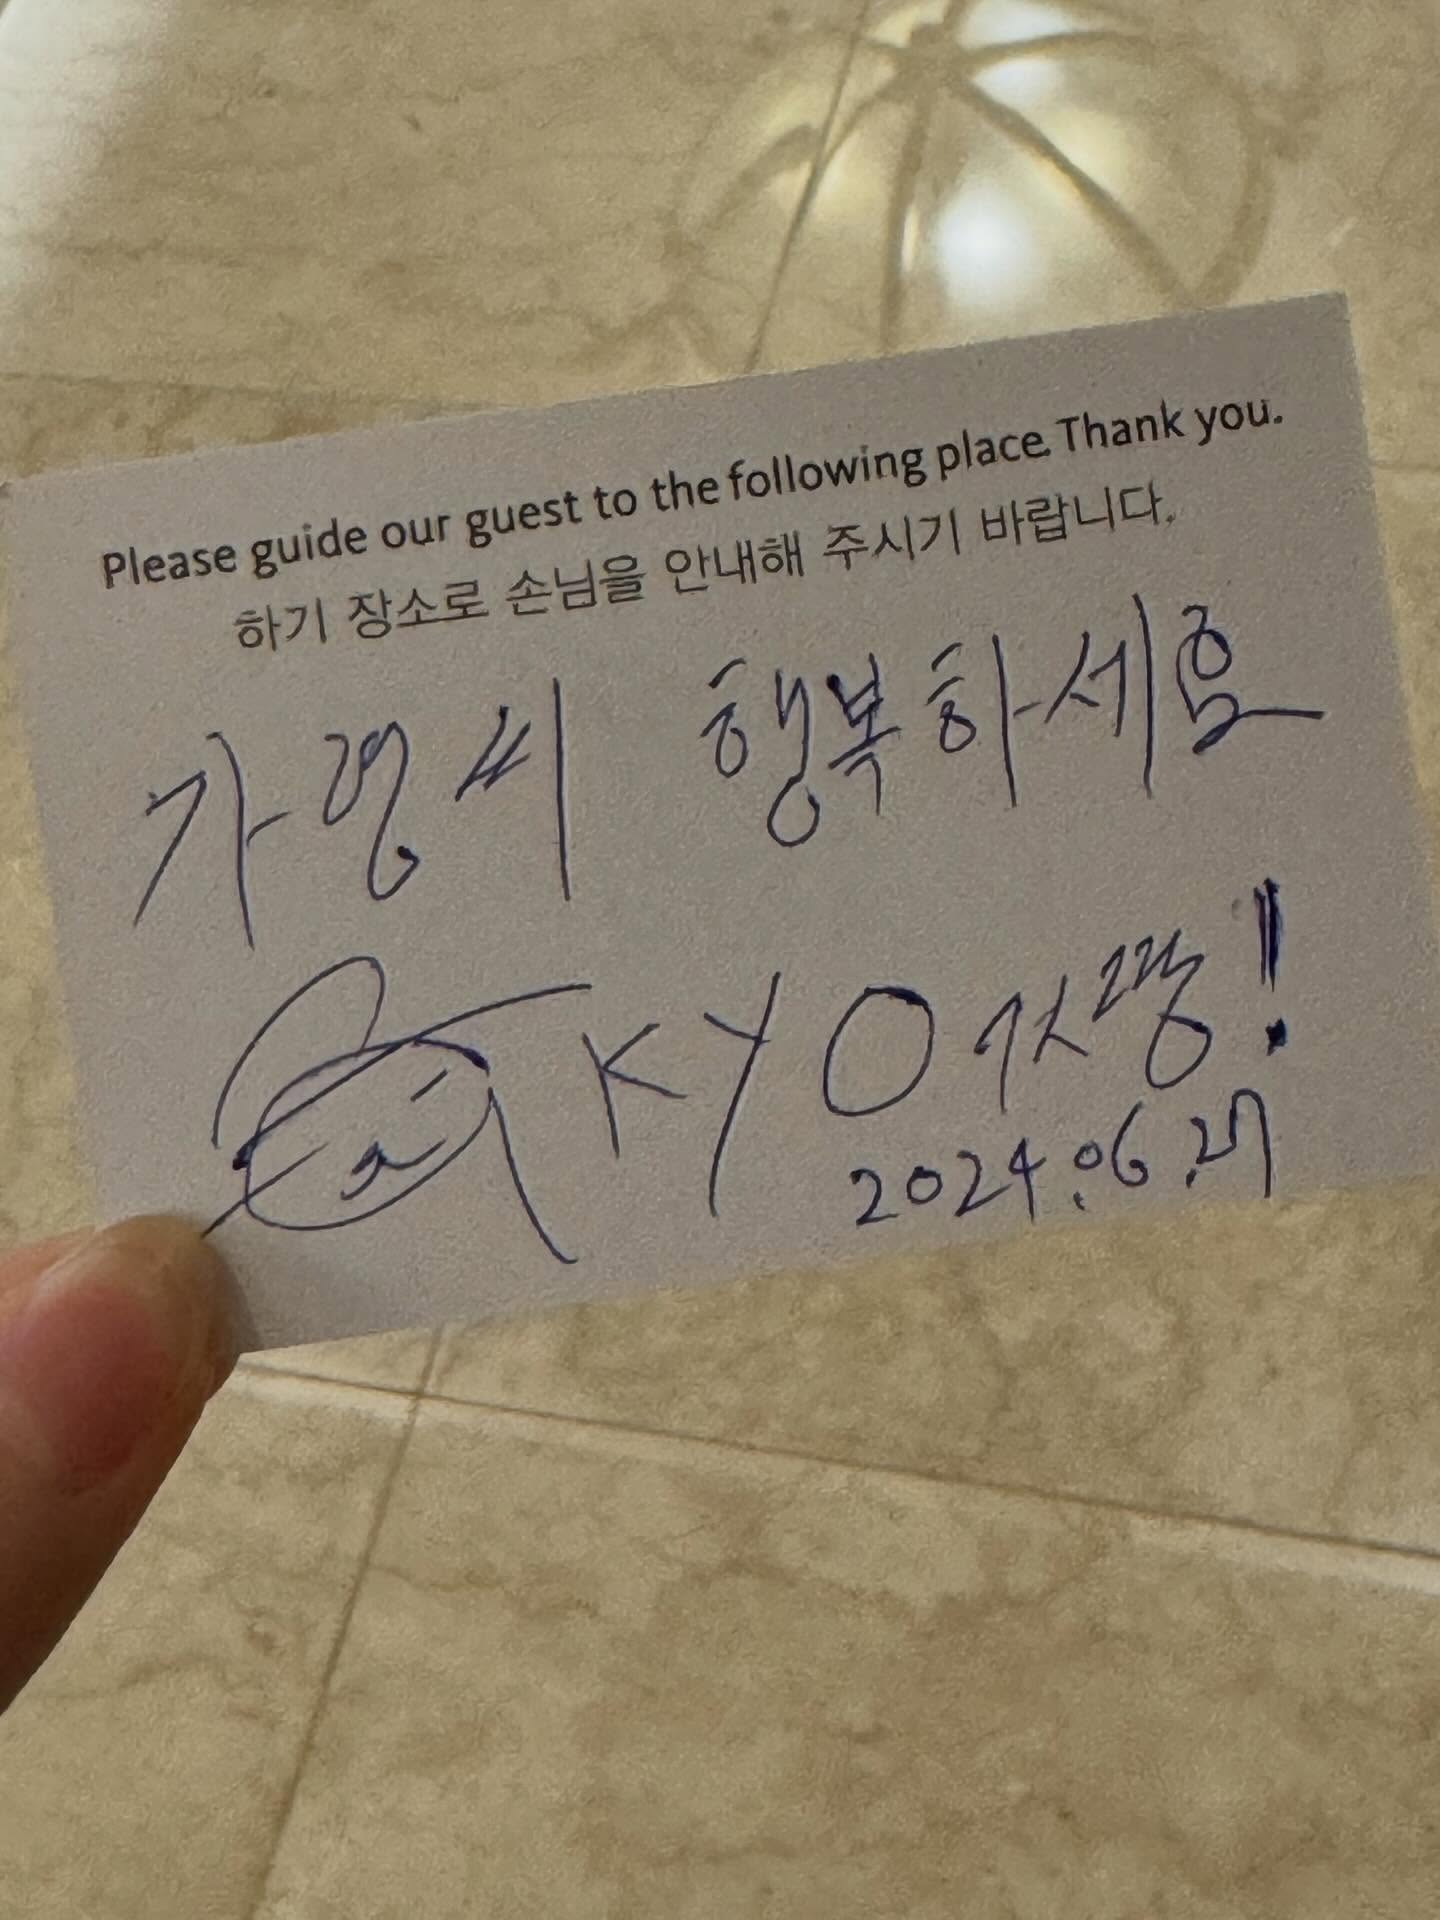 Please guide our guest to the following place. Thank you.
하기 장소로 손님을 안내해 주시기 바랍니다.
가영씨 행복하세요
KYO 사랑!
2024.06.27